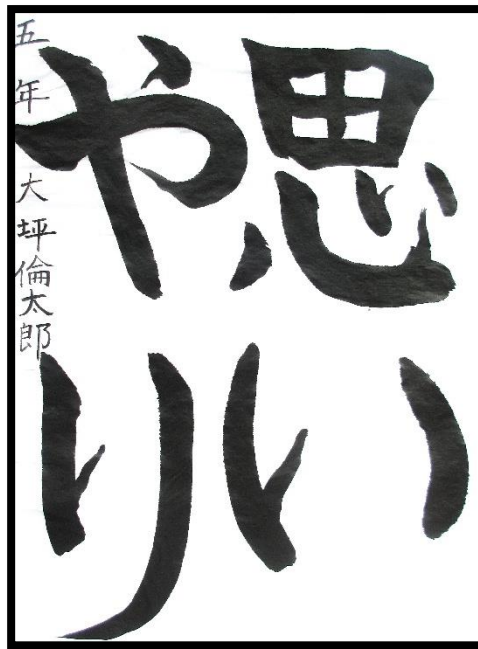 思い
やり
五年 大坪倫太郎